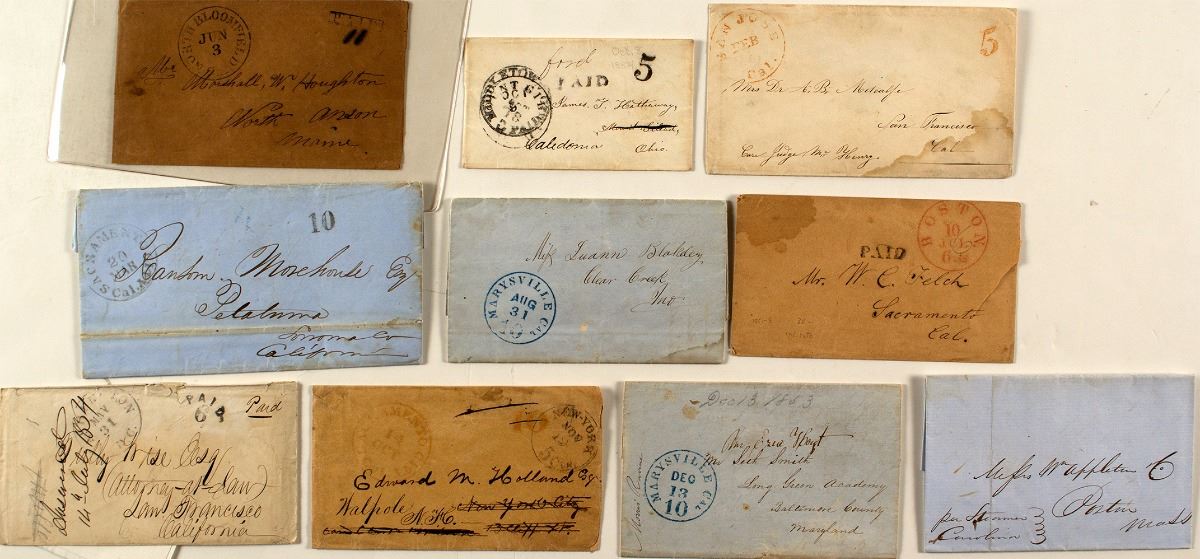 NORTH BLOOMFIELD
JUN
3
PAID
Marshall, W. Houghton
North Anson
Maine
MIDDLETOWN
OCT
PAID
5
James T. Hathaway,
Caledonia
Ohio.
SAN JOSE
FEB
Cal.
5
Mrs Dr A. B. Metcalfe
San Francisco
Cal
Care Judge Mc Henry.
SACRAMENTO
20
MAR
Cal.
10
Ransom. Morehouse Esq
Petaluma
Sonoma Co
California
MARYSVILLE CAL
AUG
31
10
Miss Luann Blakley
Clear Creek,
Mo
BOSTON
10
JUL
6 cts
PAID
Mr. W. C. Felch
Sacramento
Cal.
MAY
31
PAID
6
Paid
Wise Esq
(Attorney-at-Law)
San Francisco
California
NEW-YORK
NOV
Edward M. Holland Esq.
Walpole
N.H.
New York City
Dec 13. 1853
MARYSVILLE CAL
DEC
13
10
Mr Ezra Hoyt
Mr Seth Smith
Long Green Academy
Baltimore County
Maryland
Messrs Wm Appleton & Co
Boston
Mass
per Steamer
Carolina